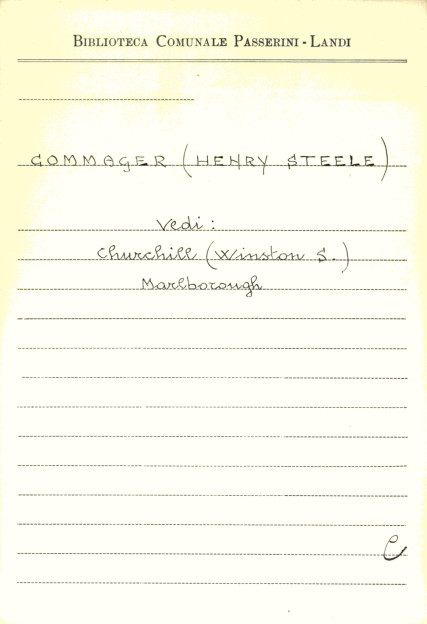 BIBLIOTECA COMUNALE PASSERINI - LANDI
COMMAGER (HENRY STEELE)
Vedi:
Churchill (Winston S.)
Marlborough
C